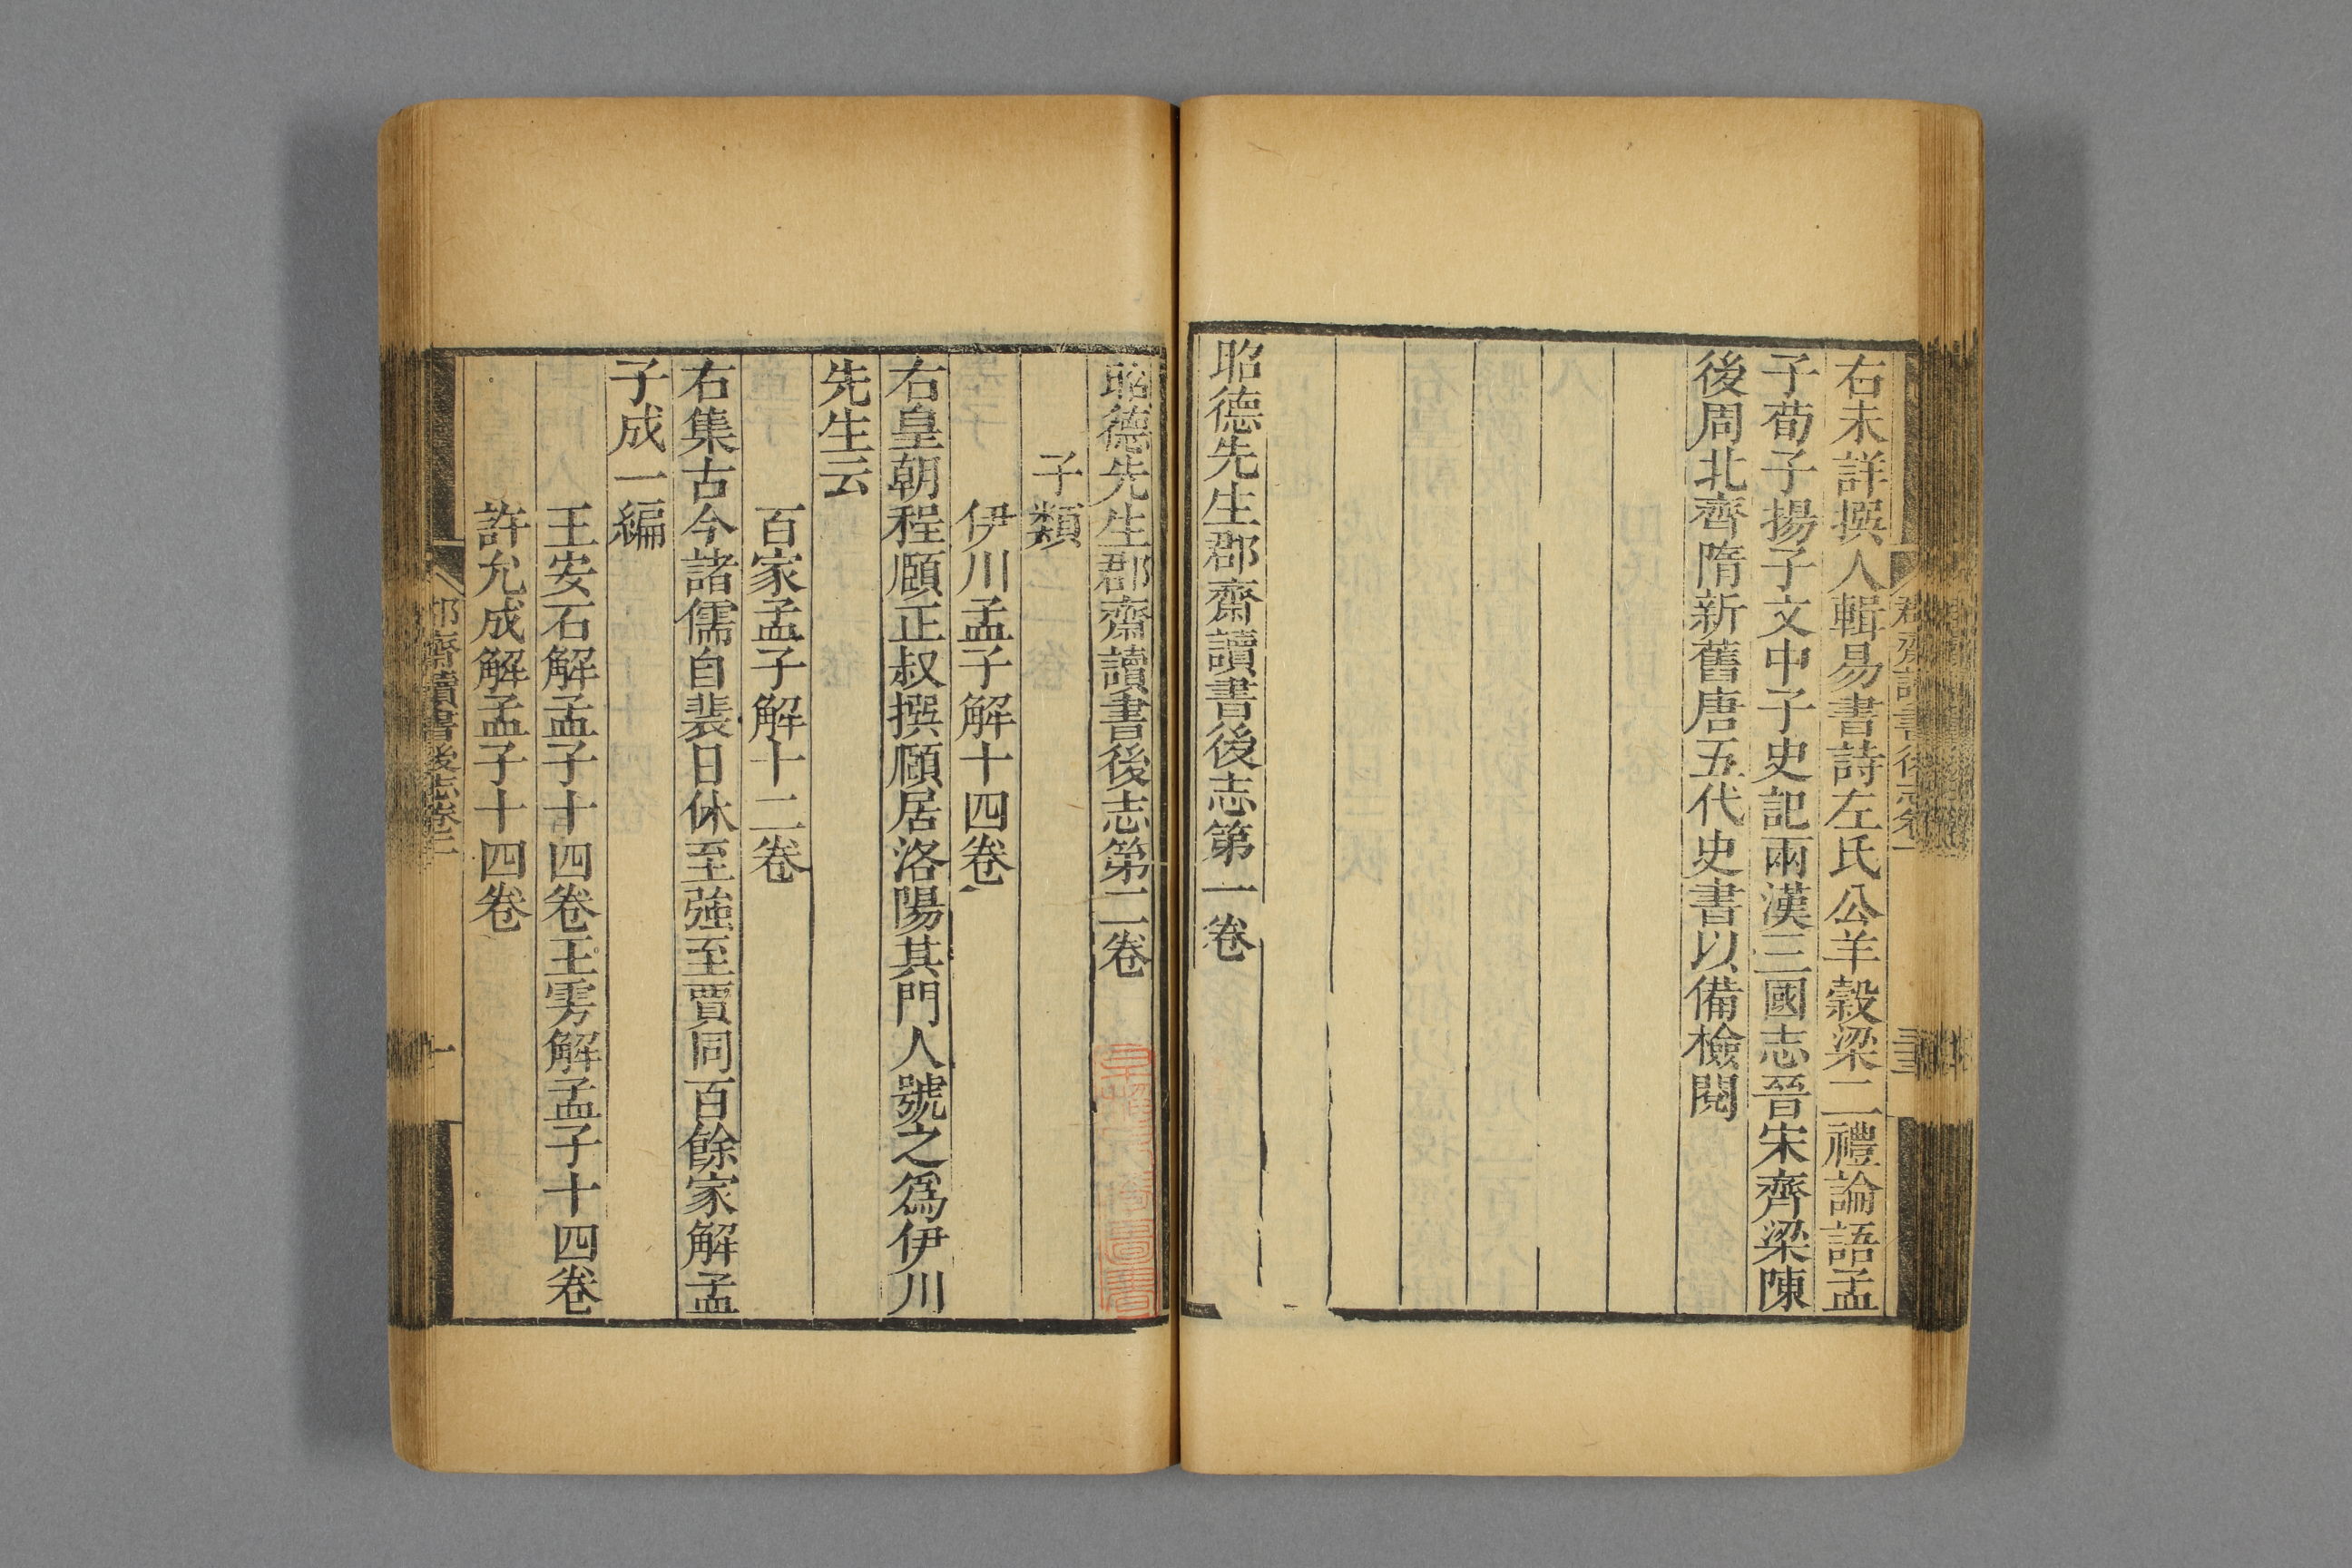 右未詳撰人輯易書詩左氏公羊穀梁二禮論語孟
子荀子揚子文中子史記兩漢三國志晉宋齊梁陳
後周北齊隋新舊唐五代史書以備檢閱
昭德先生郡齋讀書後志第一卷
昭德先生郡齋讀書後志第二卷
子類
伊川孟子解十四卷
右皇朝程頤正叔撰頤居洛陽其門人號之爲伊川
先生云
百家孟子解十二卷
右集古今諸儒自裴日休至強至賈同百餘家解孟
子成一編
王安石解孟子十四卷王雱解孟子十四卷
許允成解孟子十四卷
郡齋讀書後志卷二
一